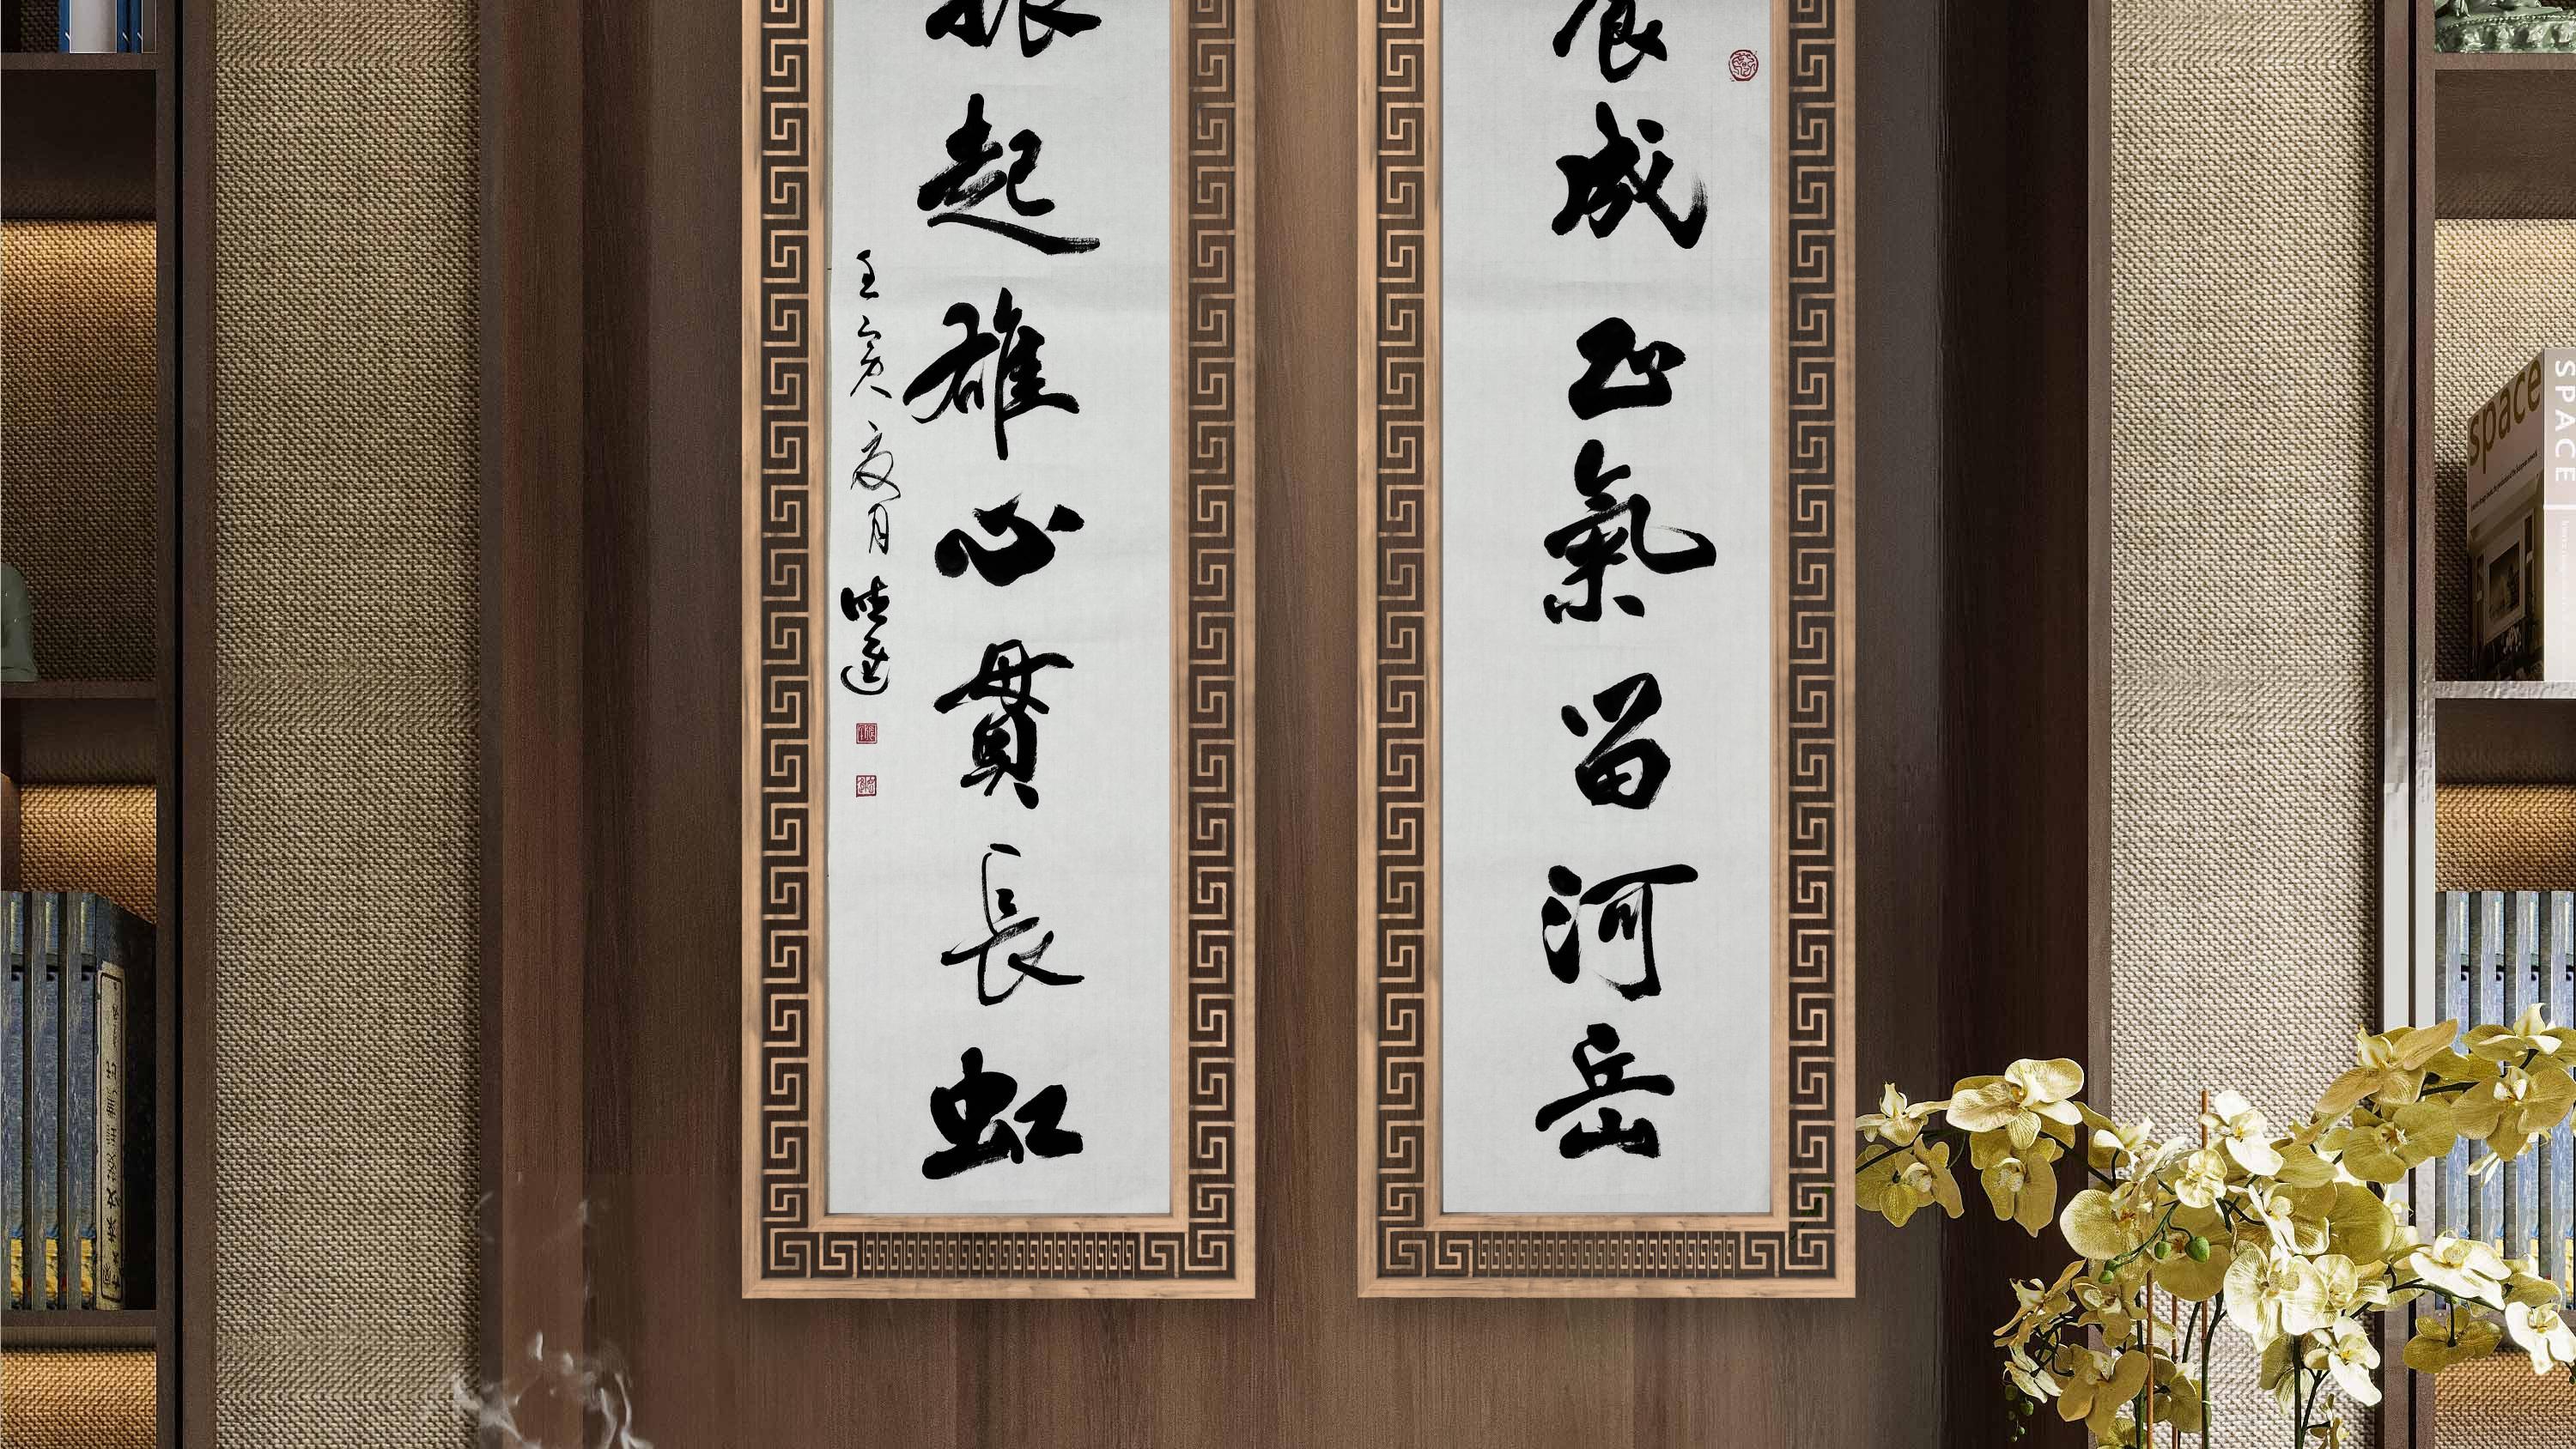 成正氣留河岳
起雄心貫長虹
壬寅夏月
space
SPACE